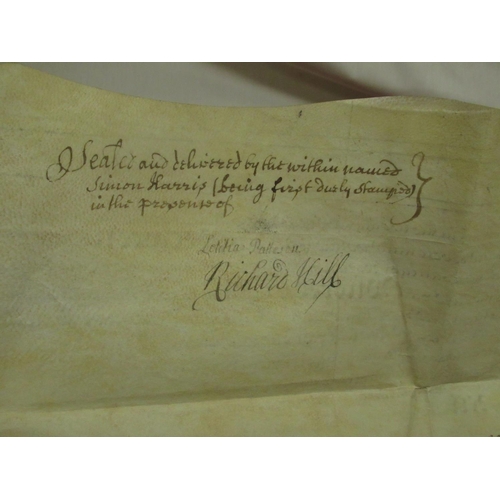 Sealed and delivered by the within named
Simon Harris (being first duely stamped)
in the presence of
Letitia Patteson
Richard Hill